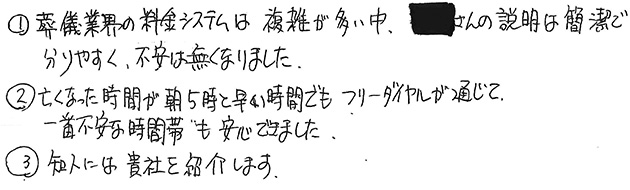 ① 葬儀業界の料金システムは 複雑が多い中、 さんの説明は簡潔で
分りやすく、不安は無くなりました.
② 亡くなった時間が朝5時と早い時間でも フリーダイヤルが通じて.
一番不安な時間帯も 安心できました.
③ 知人には 貴社を紹介します.